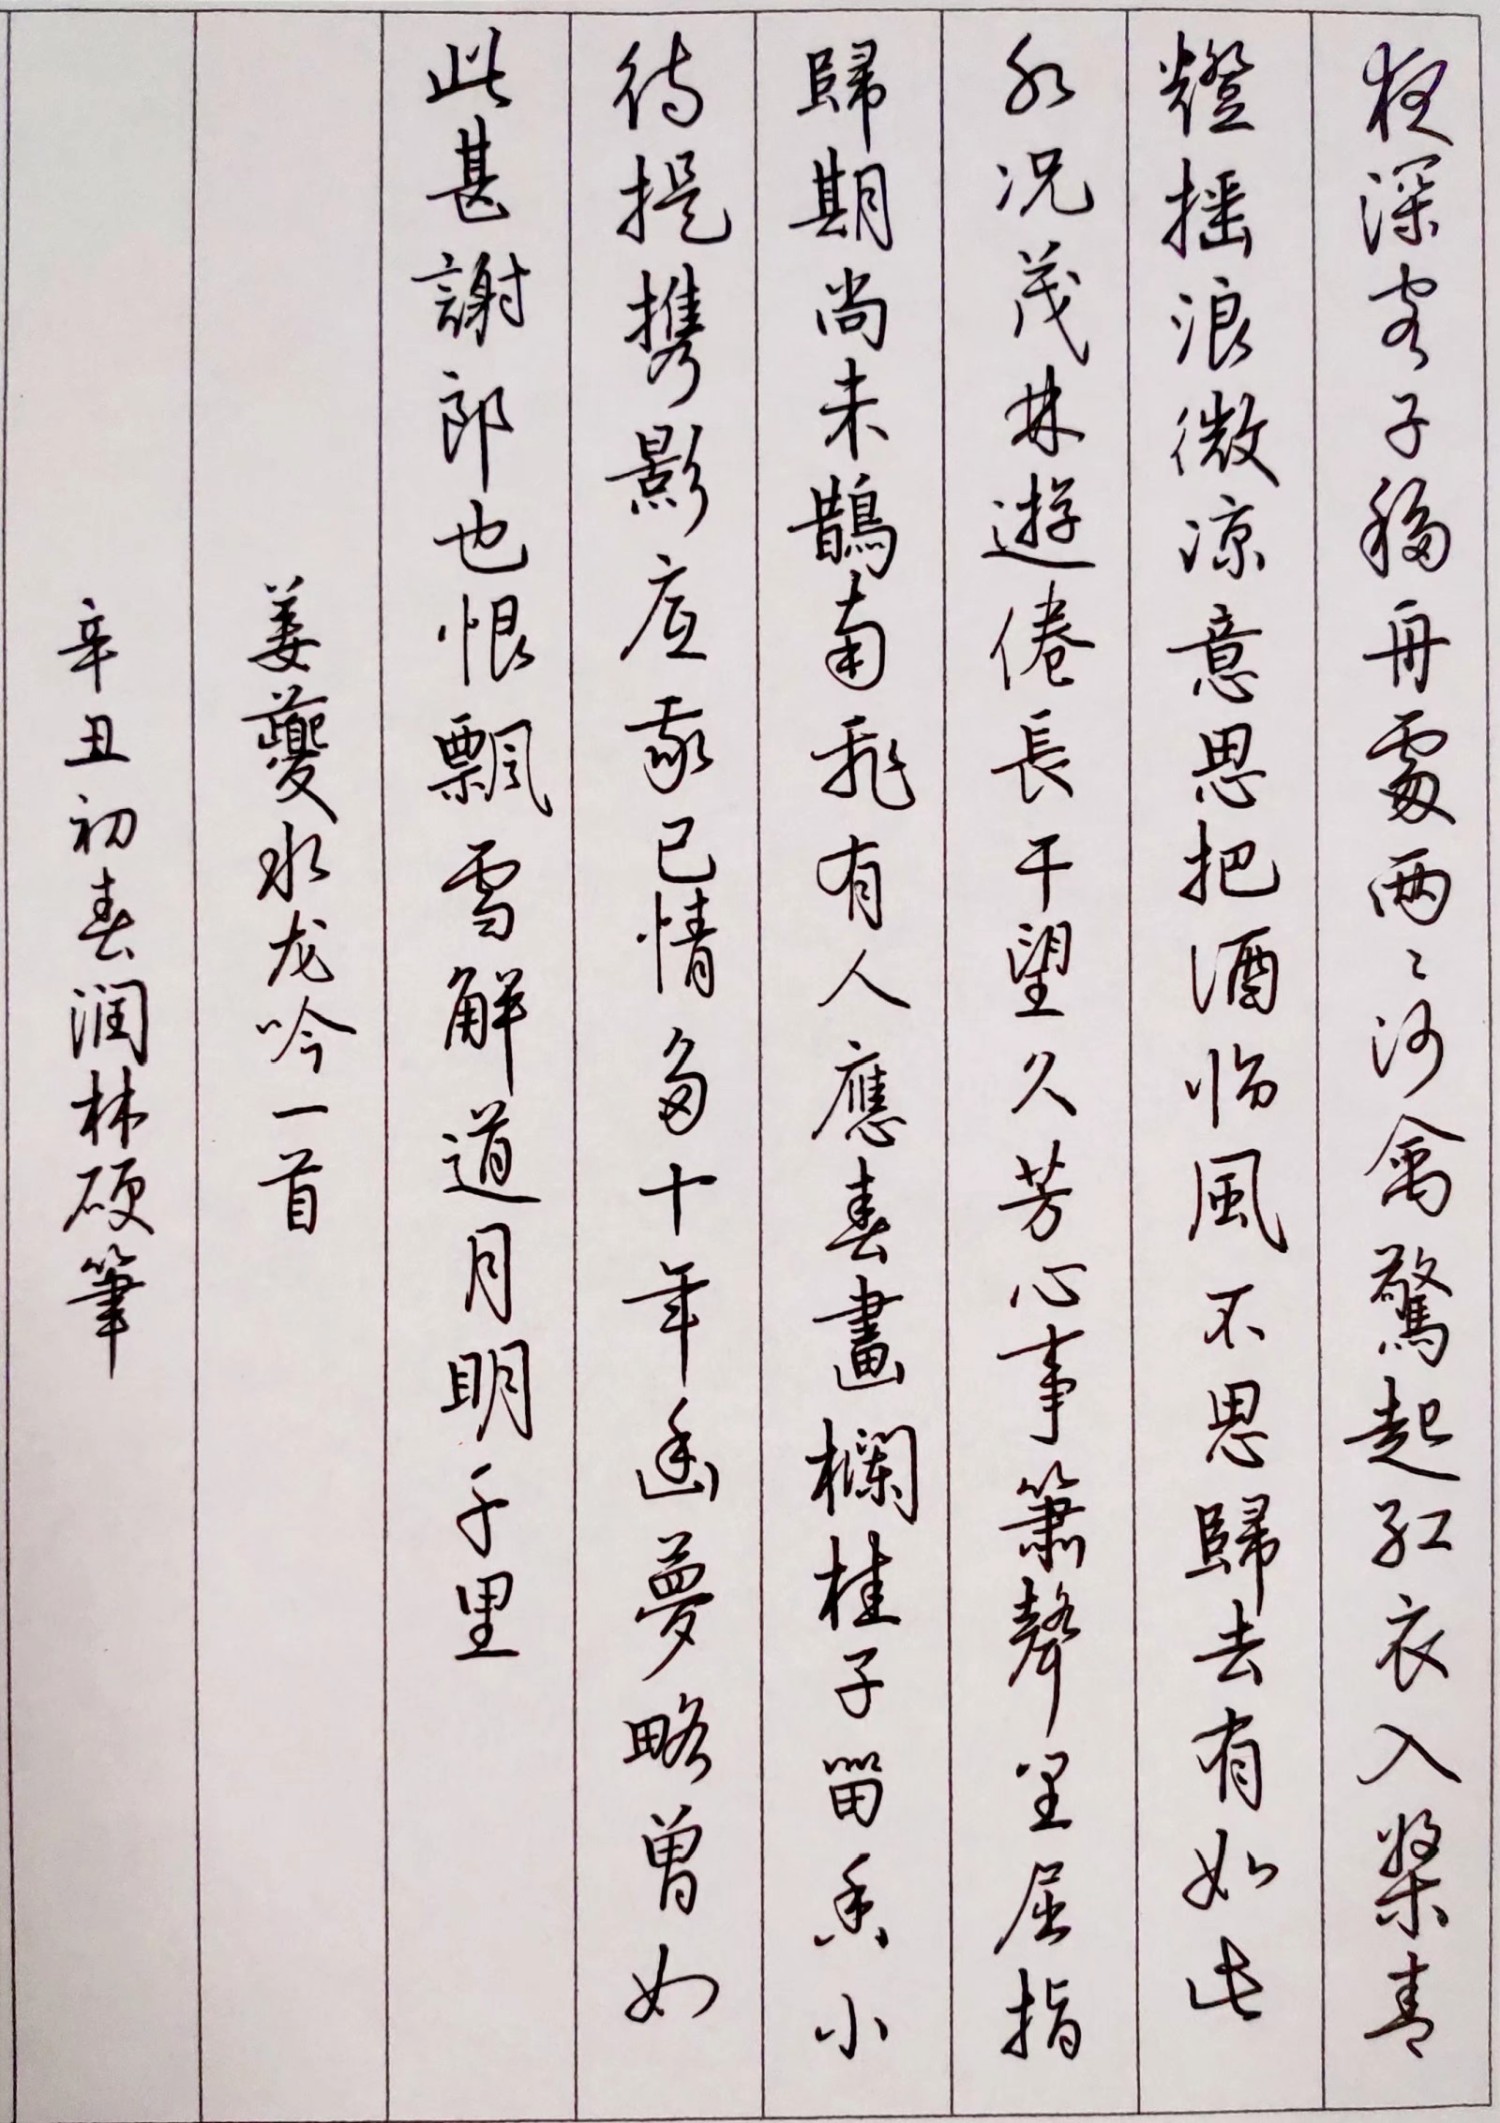 夜深客子移舟處兩〻沙禽驚起紅衣入槳青
燈摇浪微涼意思把酒临風不思歸去有如此
水况茂林遊倦長干望久芳心事簫聲里屈指
歸期尚未鵲南飛有人應喜畫欄桂子留香小
待提携影底我已情多十年幽夢略曾如
此甚謝郎也恨飄雪解道月明千里
姜夔水龙吟一首
辛丑初春润林硬筆